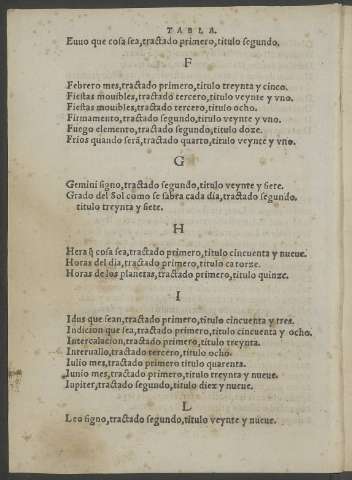 TABLA.
Euuo que cosa sea, tractado primero, titulo segundo.
F
Febrero mes, tractado primero, titulo treynta y cinco.
Fiestas mouibles, tractado tercero, titulo veynte y vno.
Fiestas mouibles, tractado tercero, titulo ocho.
Firmamento, tractado segundo, titulo veynte y vno.
Fuego elemento, tractado segundo, titulo doze.
Frios quando será, tractado quarto, titulo veynte y vno.
G
Gemini signo, tractado segundo, titulo veynte y siete.
Grado del Sol como se sabra cada dia, tractado segundo.
titulo treynta y siete.
H
Hera q̃ cosa sea, tractado primero, titulo cincuenta y nueue.
Horas del dia, tractado primero, titulo catorze.
Horas de los planetas, tractado primero, titulo quinze.
I
Idus que sean, tractado primero, titulo cincuenta y tres.
Indicion que sea, tractado primero, titulo cincuenta y ocho.
Intercalacion, tractado primero, titulo treynta.
Interualio, tractado tercero, titulo ocho.
Iulio mes, tractado primero titulo quarenta.
Iunio mes, tractado primero, titulo treynta y nueue.
Iupiter, tractado segundo, titulo diez y nueue.
L
Leo signo, tractado segundo, titulo veynte y nueue.